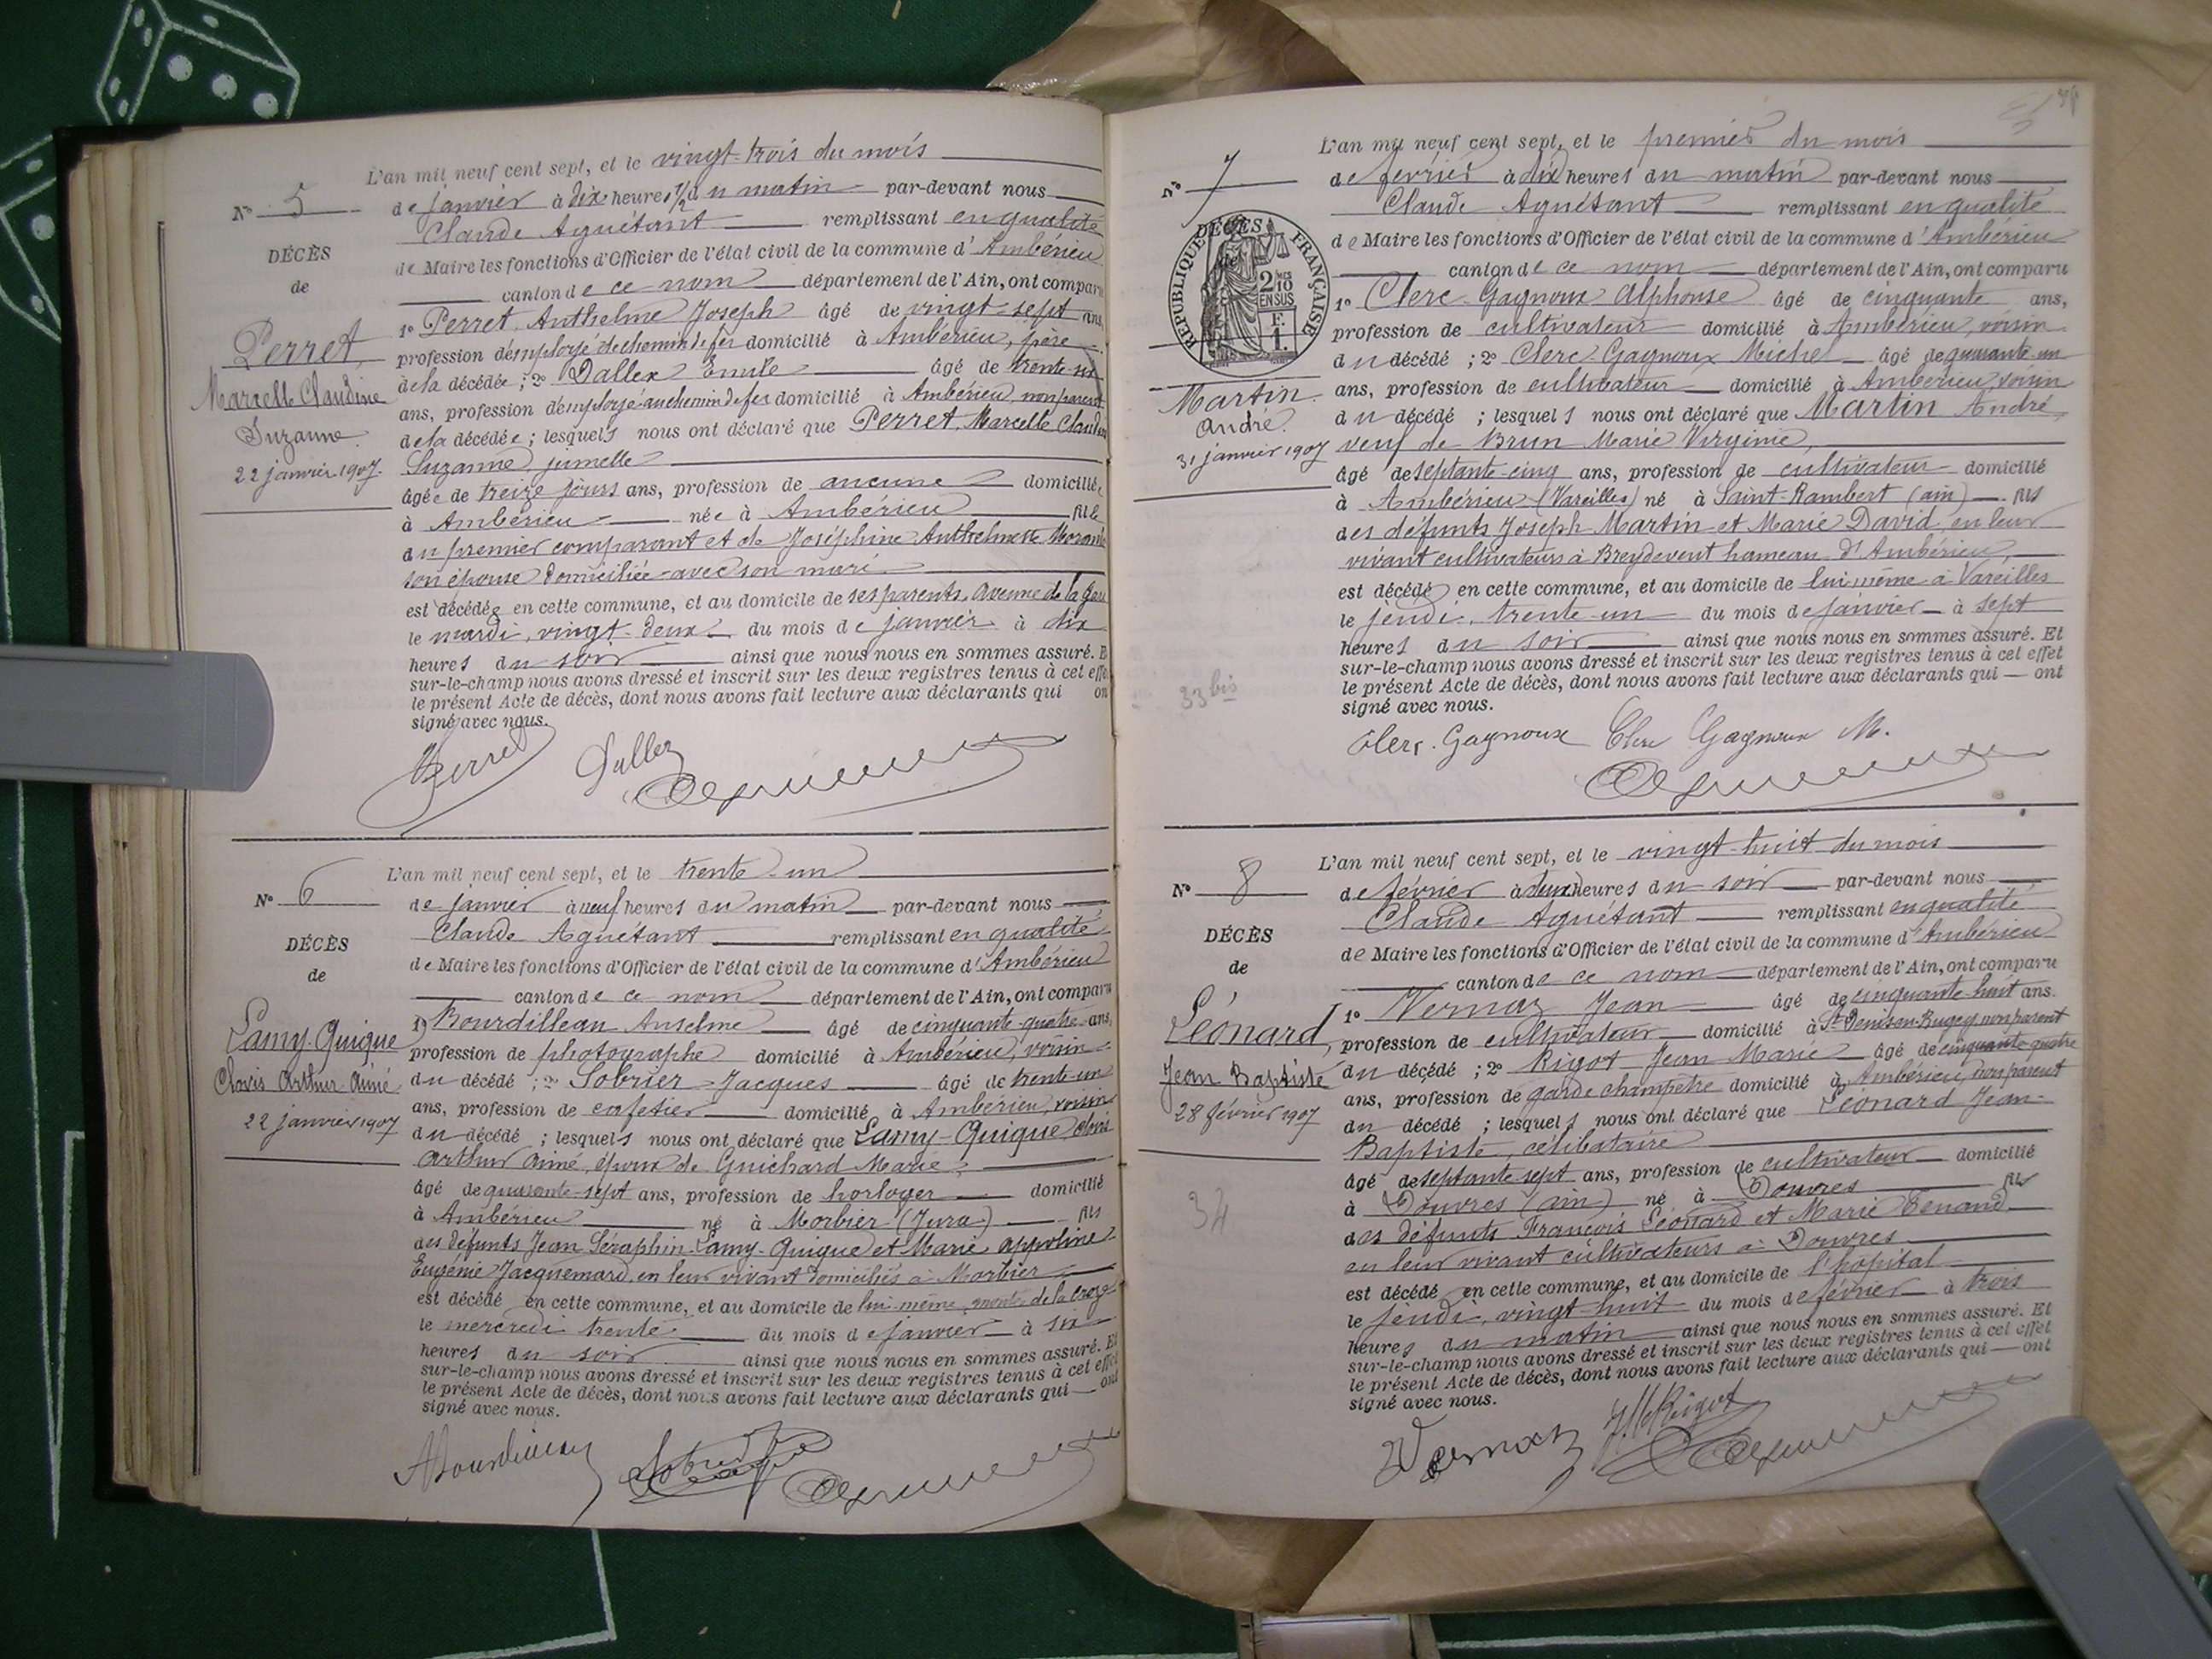 L'an mil neuf cent sept, et le vingt-trois du mois
N° 5
de janvier à dix heures 1/2 du matin par-devant nous
Claude Aguétant remplissant en qualité
DÉCÈS
de Maire les fonctions d'Officier de l'état civil de la commune d'Ambérieu
de
canton de ce nom département de l'Ain, ont comparu
1° Perret Anthelme Joseph âgé de vingt-sept ans,
Perret,
profession d'employé de chemin de fer domicilié à Ambérieu, père
à la décédée ; 2° Dallex Emile âgé de trente-six
Marcelle Claudine
ans, profession d'employé au chemin de fer domicilié à Ambérieu, non parent
Suzanne.
de la décédée ; lesquels nous ont déclaré que Perret, Marcelle Claudine
22 janvier 1907.
Suzanne, jumelle
âgée de treize jours ans, profession de aucune domiciliée
à Ambérieu née à Ambérieu fille
du premier comparant et de Joséphine Anthelmette
son épouse domiciliée avec son mari
est décédée en cette commune, et au domicile de ses parents, avenue de la gare
le mardi, vingt-deux du mois de janvier à dix
heures du soir ainsi que nous nous en sommes assuré. Et
sur-le-champ nous avons dressé et inscrit sur les deux registres tenus à cet effet
le présent Acte de décès, dont nous avons fait lecture aux déclarants qui ont
signé avec nous.
Perret Dallex
L'an mil neuf cent sept, et le trente-un
N° 6
de janvier à neuf heures du matin par-devant nous
Claude Aguétant remplissant en qualité
DÉCÈS
de Maire les fonctions d'Officier de l'état civil de la commune d'Ambérieu
de
canton de ce nom département de l'Ain, ont comparu
1° Bourdilleau Anselme âgé de cinquante-quatre ans,
Lamy-Quique
profession de photographe domicilié à Ambérieu, voisin
Clovis Arthur Aimé
du décédé ; 2° Sobrier Jacques âgé de trente-un
ans, profession de cafetier domicilié à Ambérieu, voisin
22 janvier 1907
du décédé ; lesquels nous ont déclaré que Lamy-Quique Clovis
Arthur Aimé, époux de Guichard Marie,
âgé de quarante-sept ans, profession de horloger domicilié
à Ambérieu né à Morbier (Jura) fils
des défunts Jean Séraphin Lamy-Quique et Marie Appoline
Eugénie Jacquemard, en leur vivant domiciliés à Morbier
est décédé en cette commune, et au domicile de lui-même, de la
le mercredi trente du mois de janvier à six
heures du soir ainsi que nous nous en sommes assuré. Et
sur-le-champ nous avons dressé et inscrit sur les deux registres tenus à cet effet
le présent Acte de décès, dont nous avons fait lecture aux déclarants qui ont
signé avec nous.
L'an mil neuf cent sept, et le premier du mois
N° 7
de février à dix heures du matin par-devant nous
Claude Aguétant remplissant en qualité
de Maire les fonctions d'Officier de l'état civil de la commune d'Ambérieu
DÉCÈS
RÉPUBLIQUE FRANÇAISE
2/10 EN SUS
F. 1.
canton de ce nom département de l'Ain, ont comparu
1° Clerc-Gagnoux Alphonse âgé de cinquante ans,
profession de cultivateur domicilié à Ambérieu, voisin
du décédé ; 2° Clerc-Gagnoux Michel âgé de quarante-un
Martin
ans, profession de cultivateur domicilié à Ambérieu, voisin
André.
du décédé ; lesquels nous ont déclaré que Martin André,
31 janvier 1907
veuf de Brun Marie Virginie,
âgé de septante-cinq ans, profession de cultivateur domicilié
à Ambérieu (Vareilles) né à Saint-Rambert (ain) fils
des défunts Joseph Martin et Marie David en leur
vivant cultivateurs à Breydevent hameau d'Ambérieu,
est décédé en cette commune, et au domicile de lui-même à Vareilles
le jeudi, trente-un du mois de janvier à sept
heures du soir ainsi que nous nous en sommes assuré. Et
sur-le-champ nous avons dressé et inscrit sur les deux registres tenus à cet effet
33 bis
le présent Acte de décès, dont nous avons fait lecture aux déclarants qui ont
signé avec nous.
Clerc. Gagnoux Clerc Gagnoux M.
L'an mil neuf cent sept, et le vingt-huit du mois
N° 8
de février à deux heures du soir par-devant nous
Claude Aguétant remplissant en qualité
DÉCÈS
de Maire les fonctions d'Officier de l'état civil de la commune d'Ambérieu
de
canton de ce nom département de l'Ain, ont comparu
1° Vernaz Jean âgé de cinquante-huit ans.
Léonard,
profession de cultivateur domicilié à St Denis en Bugey non parent
Jean Baptiste
du décédé ; 2° Rigot Jean Marie âgé de cinquante-quatre
ans, profession de garde champêtre domicilié à Ambérieu, non parent
28 février 1907
du décédé ; lesquels nous ont déclaré que Léonard Jean-
Baptiste, célibataire
âgé de septante-sept ans, profession de cultivateur domicilié
34
à Douvres (ain) né à Douvres fils
des défunts François Léonard et Marie Tenand
en leur vivant cultivateurs à Douvres
est décédé en cette commune, et au domicile de l'hôpital
le jeudi, vingt-huit du mois de février à trois
heures du matin ainsi que nous nous en sommes assuré. Et
sur-le-champ nous avons dressé et inscrit sur les deux registres tenus à cet effet
le présent Acte de décès, dont nous avons fait lecture aux déclarants qui ont
signé avec nous.
Vernaz J.M. Rigot